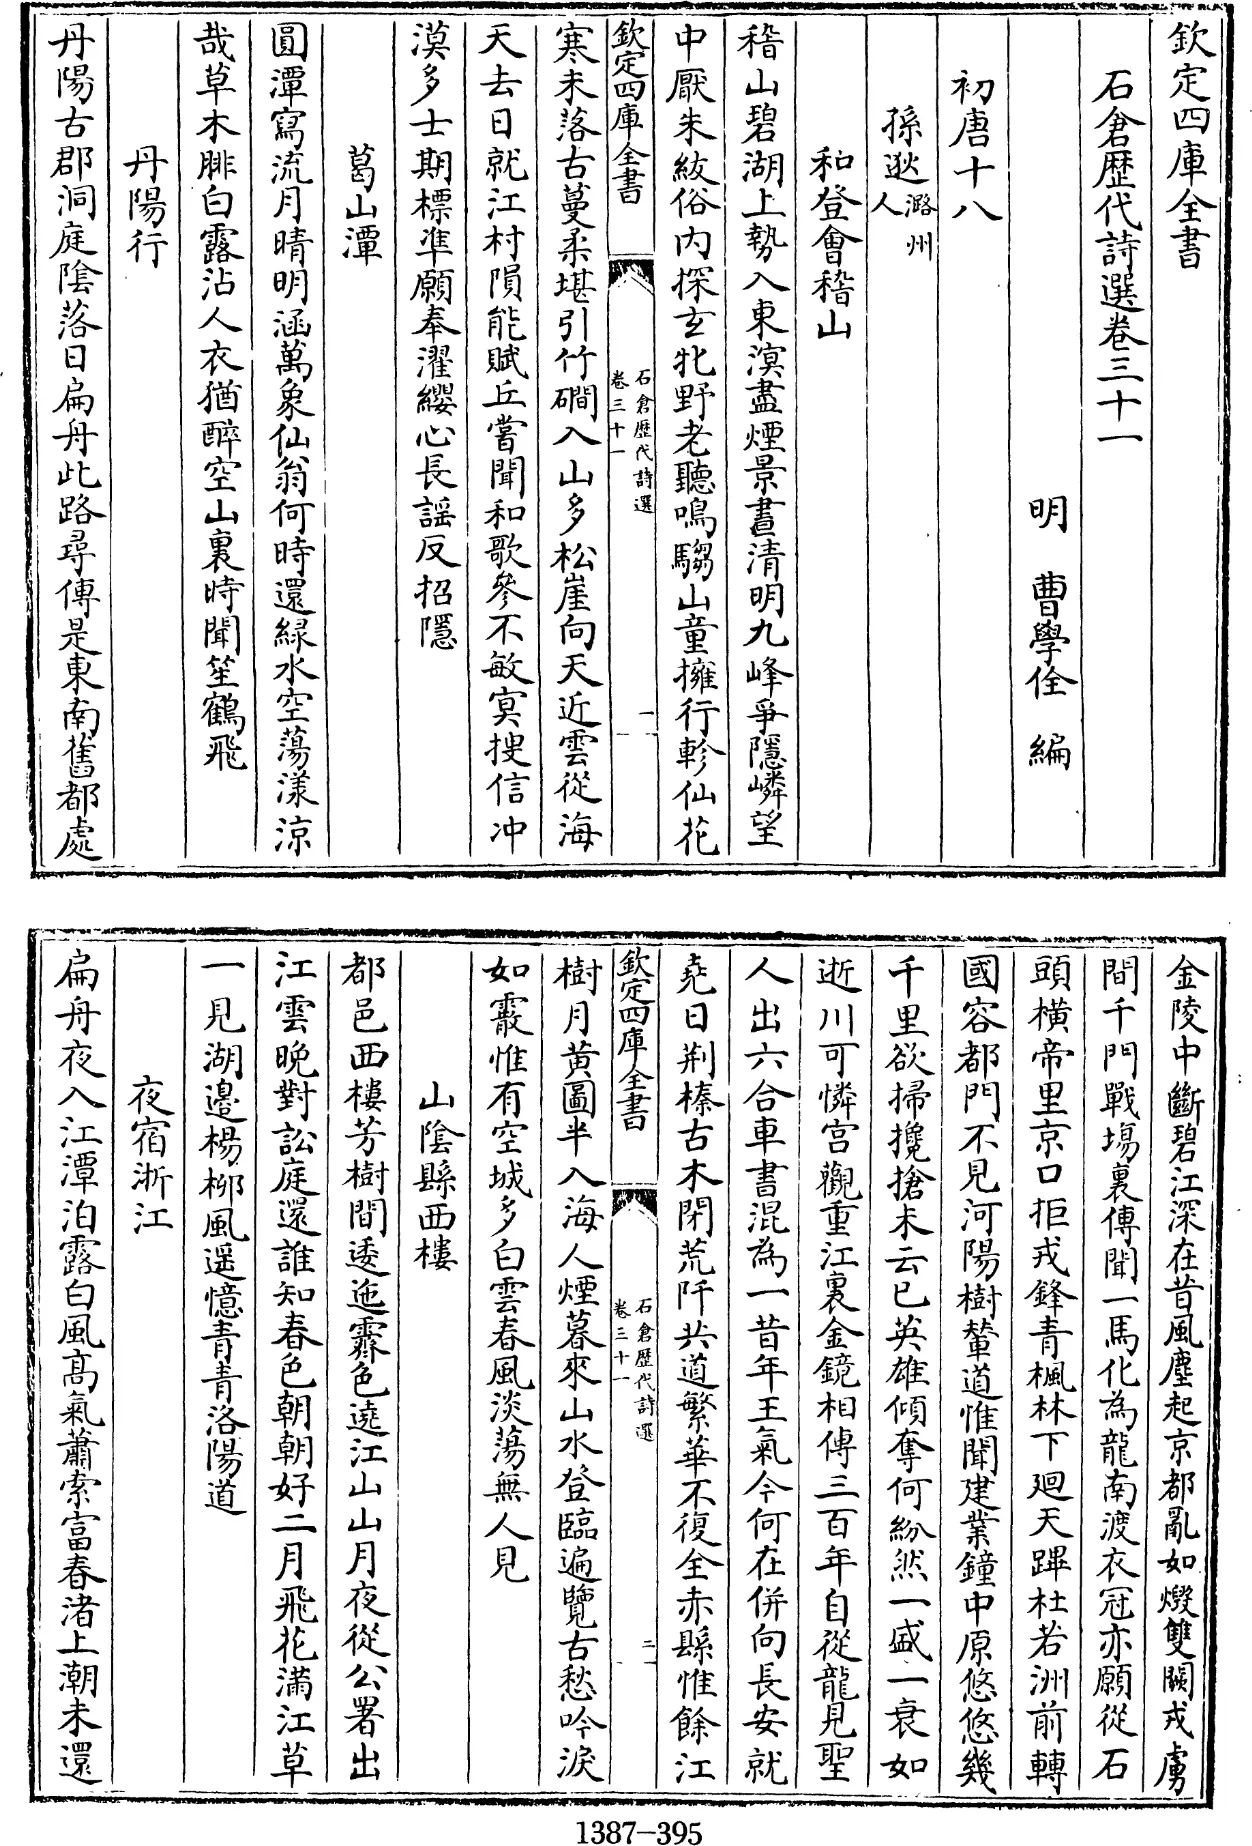 欽定四庫全書
石倉歷代詩選卷三十一
明　曹學佺　編
初唐十八
孫逖潞州人
和登會稽山
稽山碧湖上勢入東溟盡煙景晝清明九峰爭隱嶙望
中厭朱紱俗内探玄牝野老聽鳴騶山童擁行軫仙花
欽定四庫全書　石倉歷代詩選卷三十一　一
寒未落古蔓柔堪引竹磵入山多松崖向天近雲從海
天去日就江村隕能賦丘嘗聞和歌參不敏冥搜信冲
漠多士期標準願奉濯纓心長謡反招隱
葛山潭
圓潭寫流月晴明涵萬象仙翁何時還緑水空蕩漾涼
哉草木腓白露沾人衣猶醉空山裏時聞笙鶴飛
丹陽行
丹陽古郡洞庭隂落日扁舟此路尋傳是東南舊都處
金陵中斷碧江深在昔風塵起京都亂如燬雙闕戎虜
間千門戰塲裏傳聞一馬化為龍南渡衣冠亦願從石
頭橫帝里京口拒戎鋒青楓林下廻天蹕杜若洲前轉
國容都門不見河陽樹輦道惟聞建業鐘中原悠悠幾
千里欲掃攙搶未云已英雄傾奪何紛然一盛一衰如
逝川可憐宫觀重江裏金鏡相傳三百年自從龍見聖
人出六合車書混為一昔年王氣今何在併向長安就
堯日荆榛古木閉荒阡共道繁華不復全赤縣惟餘江
欽定四庫全書　石倉歷代詩選卷三十一　二
樹月黄圖半入海人煙暮來山水登臨遍覽古愁吟淚
如霰惟有空城多白雲春風淡蕩無人見
山陰縣西樓
都邑西樓芳樹間逶迤霽色遶江山山月夜從公署出
江雲晩對訟庭還誰知春色朝朝好二月飛花滿江草
一見湖邉楊栁風遥憶青青洛陽道
夜宿浙江
扁舟夜入江潭泊露白風髙氣蕭索富春渚上潮未還
1387-395